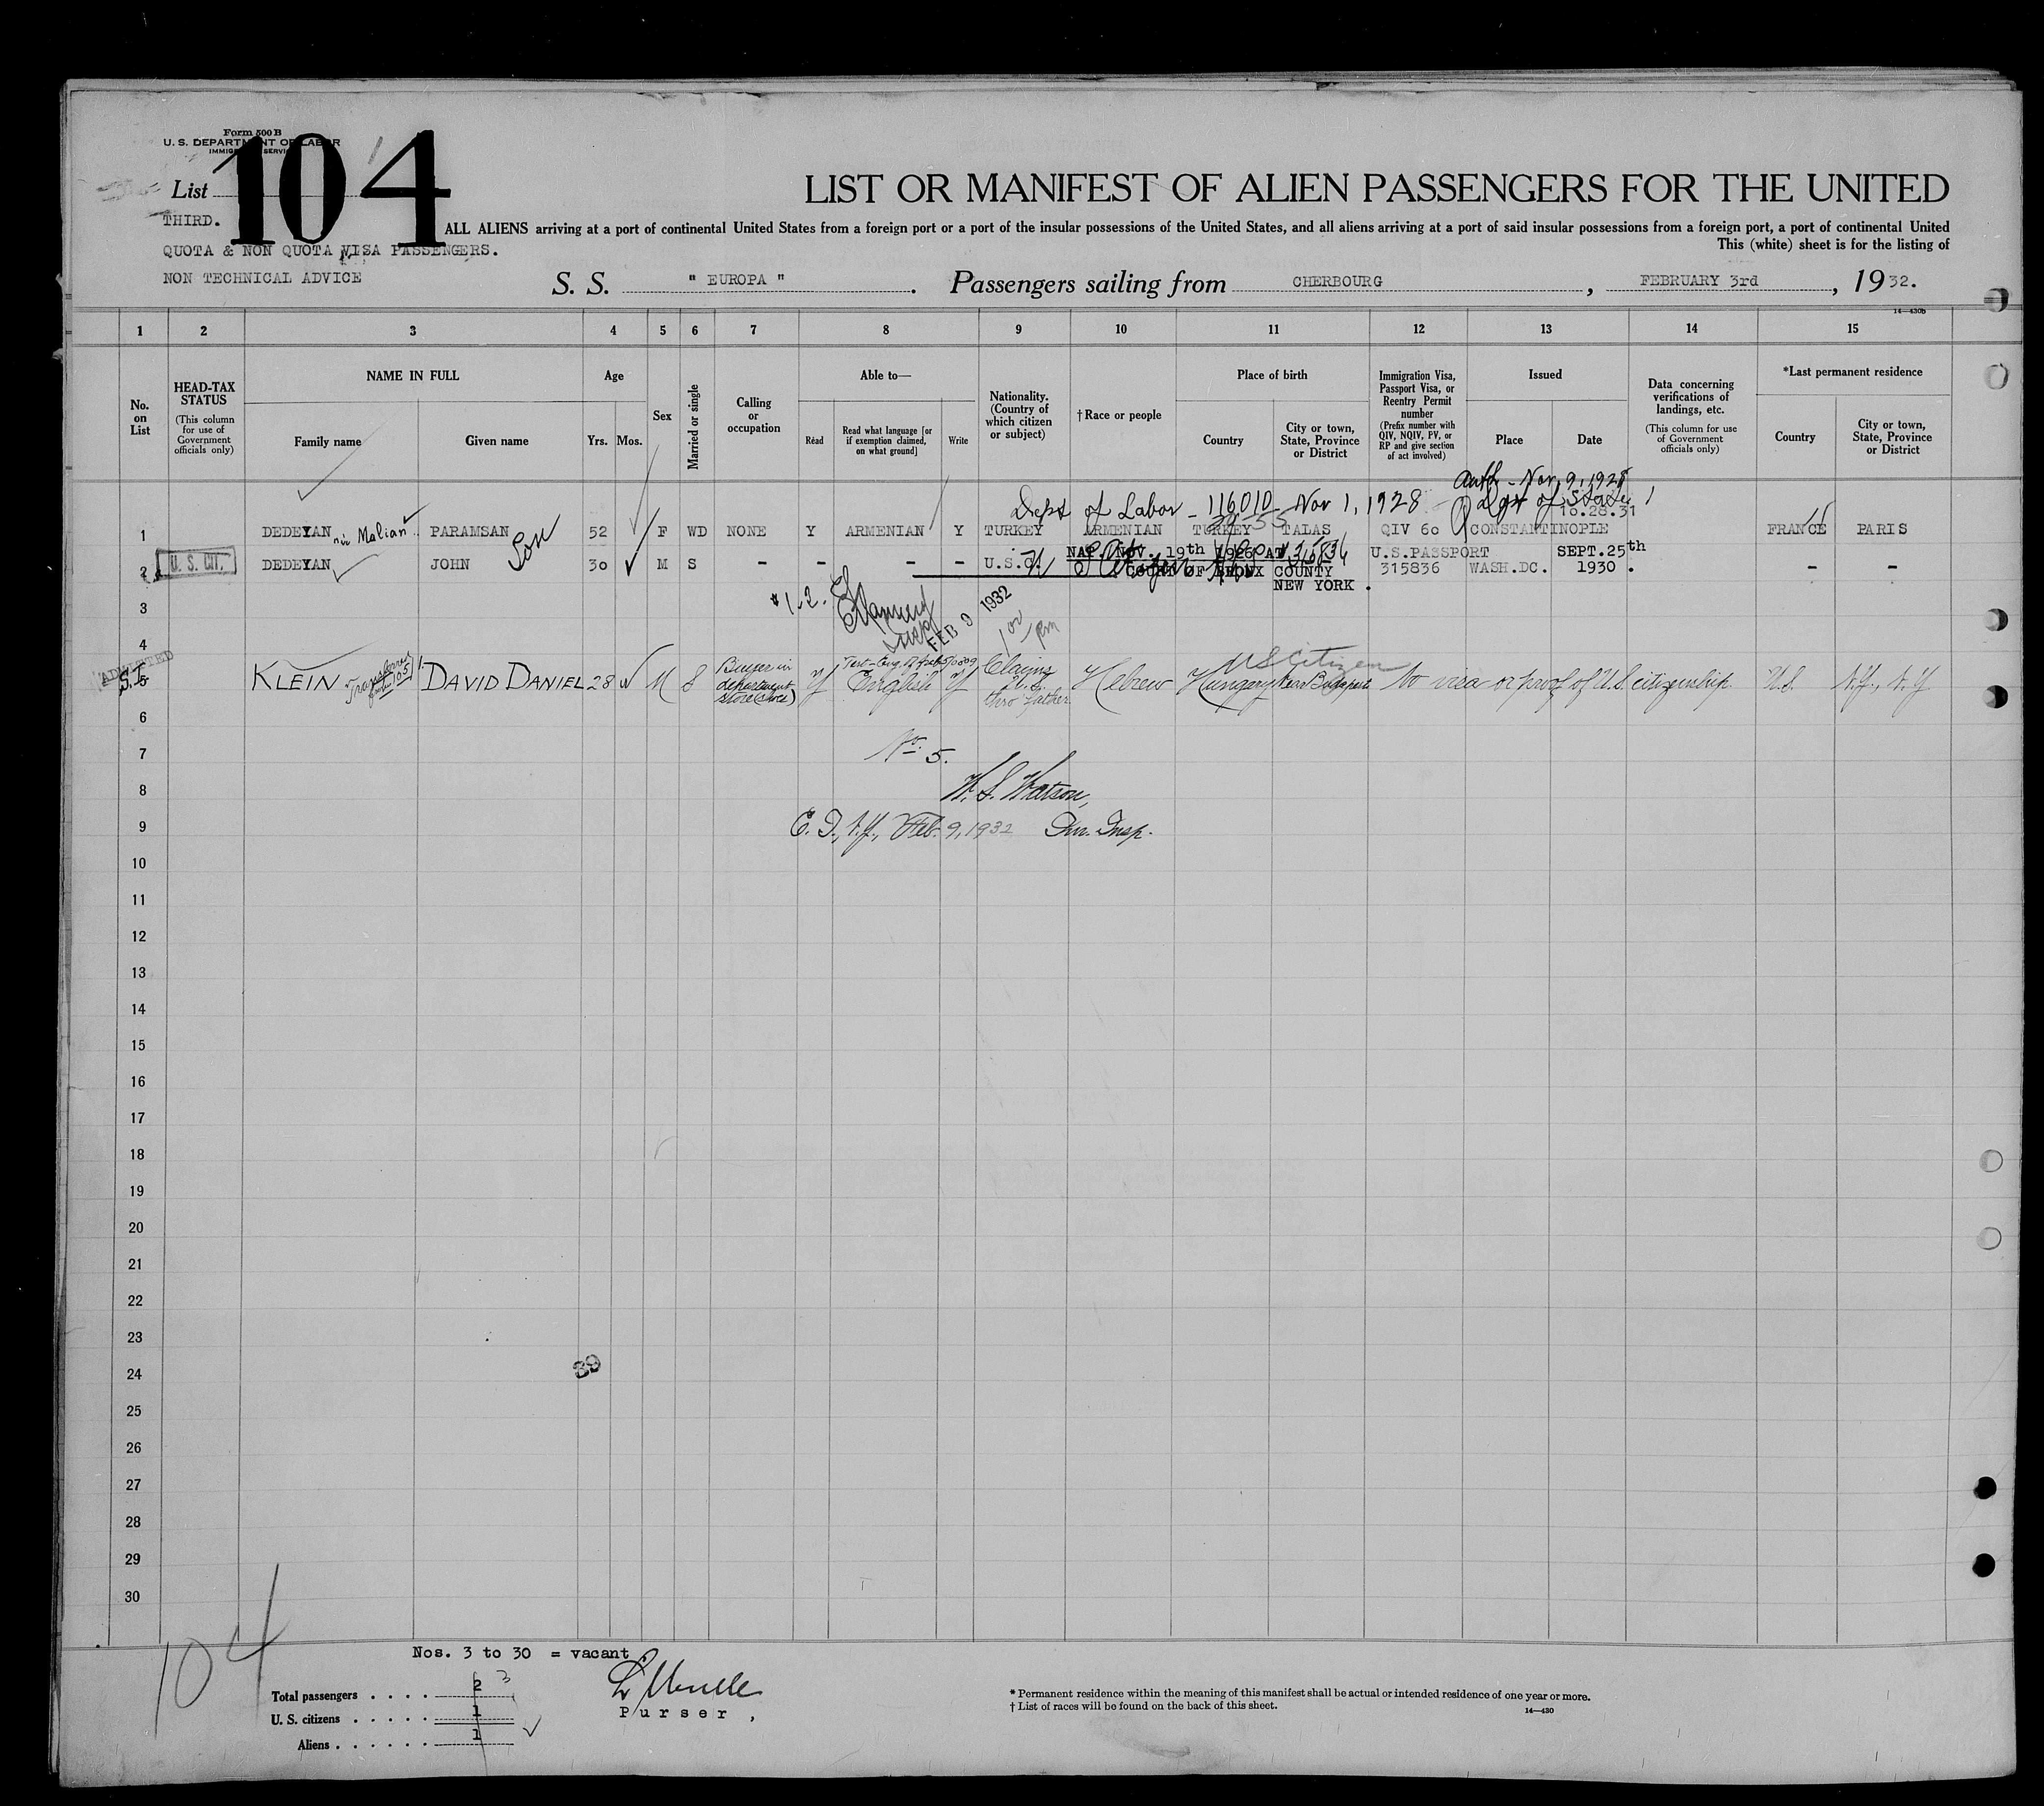 Form 500 B
U. S. DEPARTMENT OF LABOR
IMMIGRATION SERVICE
List 104
THIRD.
QUOTA & NON QUOTA VISA PASSENGERS.
NON TECHNICAL ADVICE
LIST OR MANIFEST OF ALIEN PASSENGERS FOR THE UNITED
ALL ALIENS arriving at a port of continental United States from a foreign port or a port of the insular possessions of the United States, and all aliens arriving at a port of said insular possessions from a foreign port, a port of continental United
This (white) sheet is for the listing of
S. S. " EUROPA " . Passengers sailing from CHERBOURG , FEBRUARY 3rd , 1932.
14—430b
1 2 3 4 5 6 7 8 9 10 11 12 13 14 15
No. on List
HEAD-TAX STATUS (This column for use of Government officials only)
NAME IN FULL
Family name
Given name
Age
Yrs. Mos.
Sex
Married or single
Calling or occupation
Able to—
Read
Read what language [or if exemption claimed, on what ground]
Write
Nationality. (Country of which citizen or subject)
†Race or people
Place of birth
Country
City or town, State, Province or District
Immigration Visa, Passport Visa, or Reentry Permit number (Prefix number with QIV, NQIV, PV, or RP and give section of act involved)
Issued
Place
Date
Data concerning verifications of landings, etc. (This column for use of Government officials only)
*Last permanent residence
Country
City or town, State, Province or District
Auth - Nov. 9, 1928
Dept of Labor - 116010 Nov 1, 1928 Dept of State
10.28.31
1 DEDEYAN née Malian PARAMSAN 52 F WD NONE Y ARMENIAN Y TURKEY ARMENIAN TURKEY TALAS QIV 60 CONSTANTINOPLE FRANCE PARIS
NAT. NOV. 19th 1926 AT U.S.PASSPORT SEPT.25th
2 U. S. CIT. DEDEYAN JOHN Son 30 M S - - - - U.S.C. COURT OF BRONX COUNTY 315836 WASH.DC. 1930 . - -
NEW YORK .
3
#1-2. Examined
FEB 9 1932
4
ADMITTED
S.I.
US Citizen
5 KLEIN Transferred from 105/1. DAVID DANIEL 28 M S Buyer in department store Y English Y Claims U.S. thro father Hebrew Hungary Near Budapest No visa or proof of U.S. citizenship. U.S. N.Y., N.Y
6
No. 5.
7
W. S. Watson,
8
E. I., N.Y., Feb. 9, 1932 Imm. Insp.
9
10
11
12
13
14
15
16
17
18
19
20
21
22
23
24
25
26
27
28
29
30
104
Nos. 3 to 30 = vacant
Total passengers . . . . 2 3
U. S. citizens . . . . . 1
Aliens . . . . . . 1
Purser ,
* Permanent residence within the meaning of this manifest shall be actual or intended residence of one year or more.
† List of races will be found on the back of this sheet.
14—430